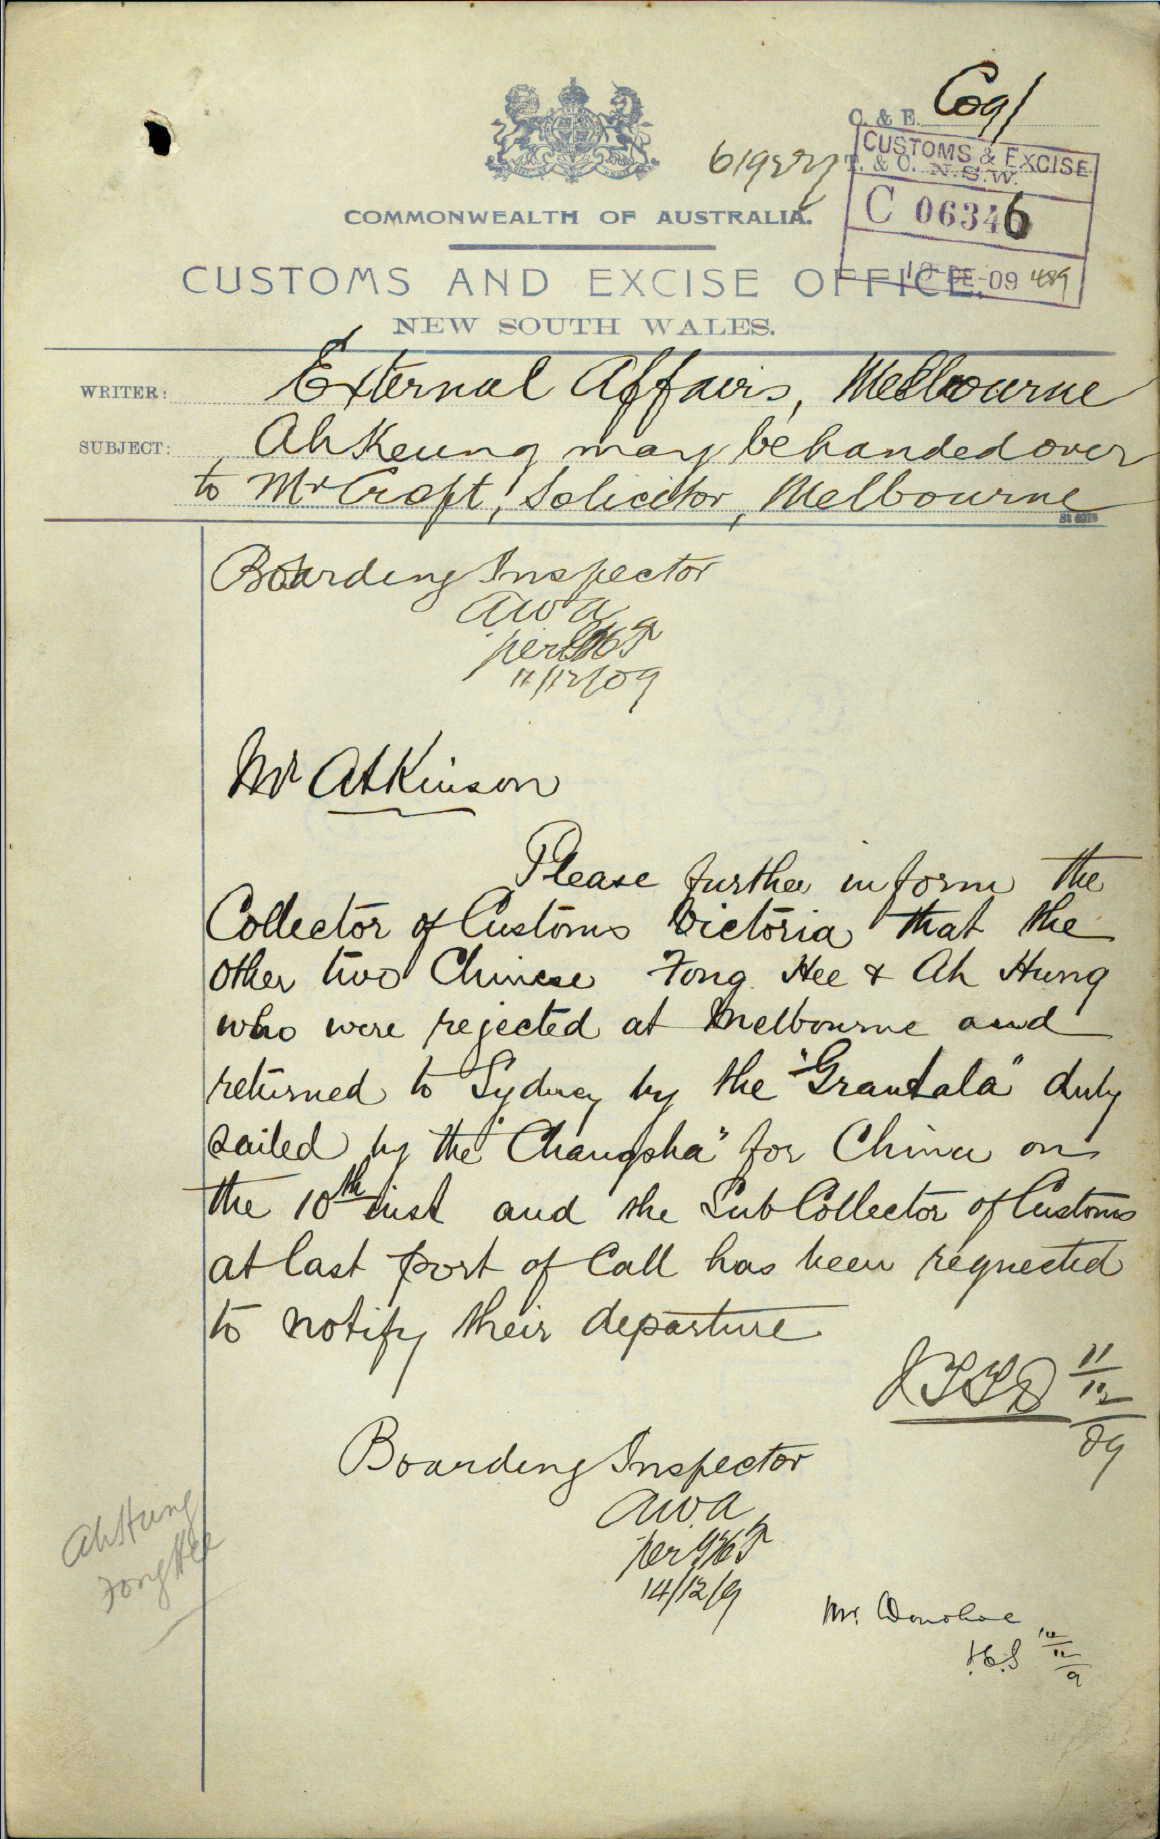 C. & E. Cog/
CUSTOMS & EXCISE
T. & C. N.S.W.
C 06346
10-DE-09 489
COMMONWEALTH OF AUSTRALIA.
CUSTOMS AND EXCISE OFFICE,
NEW SOUTH WALES.
WRITER: External Affairs, Melbourne
SUBJECT: Ah Keung may be handed over
to Mr Croft, Solicitor, Melbourne
Boarding Inspector
AWA
per
11/12/09
Mr Atkinson
Please further inform the
Collector of Customs Victoria that the
other two Chinese Fong Hee & Ah Hung
who were rejected at Melbourne and
returned to Sydney by the "Grantala" duly
sailed by the "Changsha" for China on
the 10th inst and the Sub Collector of Customs
at last port of Call has been requested
to notify their departure
11/12/09
Boarding Inspector
A.W.A
per
14/12/9
Ah Hung
Fong Hee
Mr. Donohoe